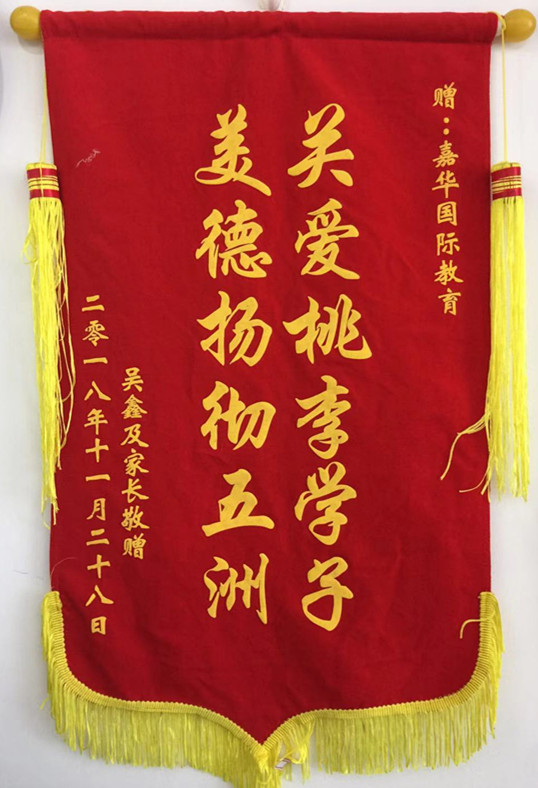 赠：嘉华国际教育
关爱桃李学子
美德扬彻五洲
吴鑫及家长敬赠
二零一八年十一月二十八日